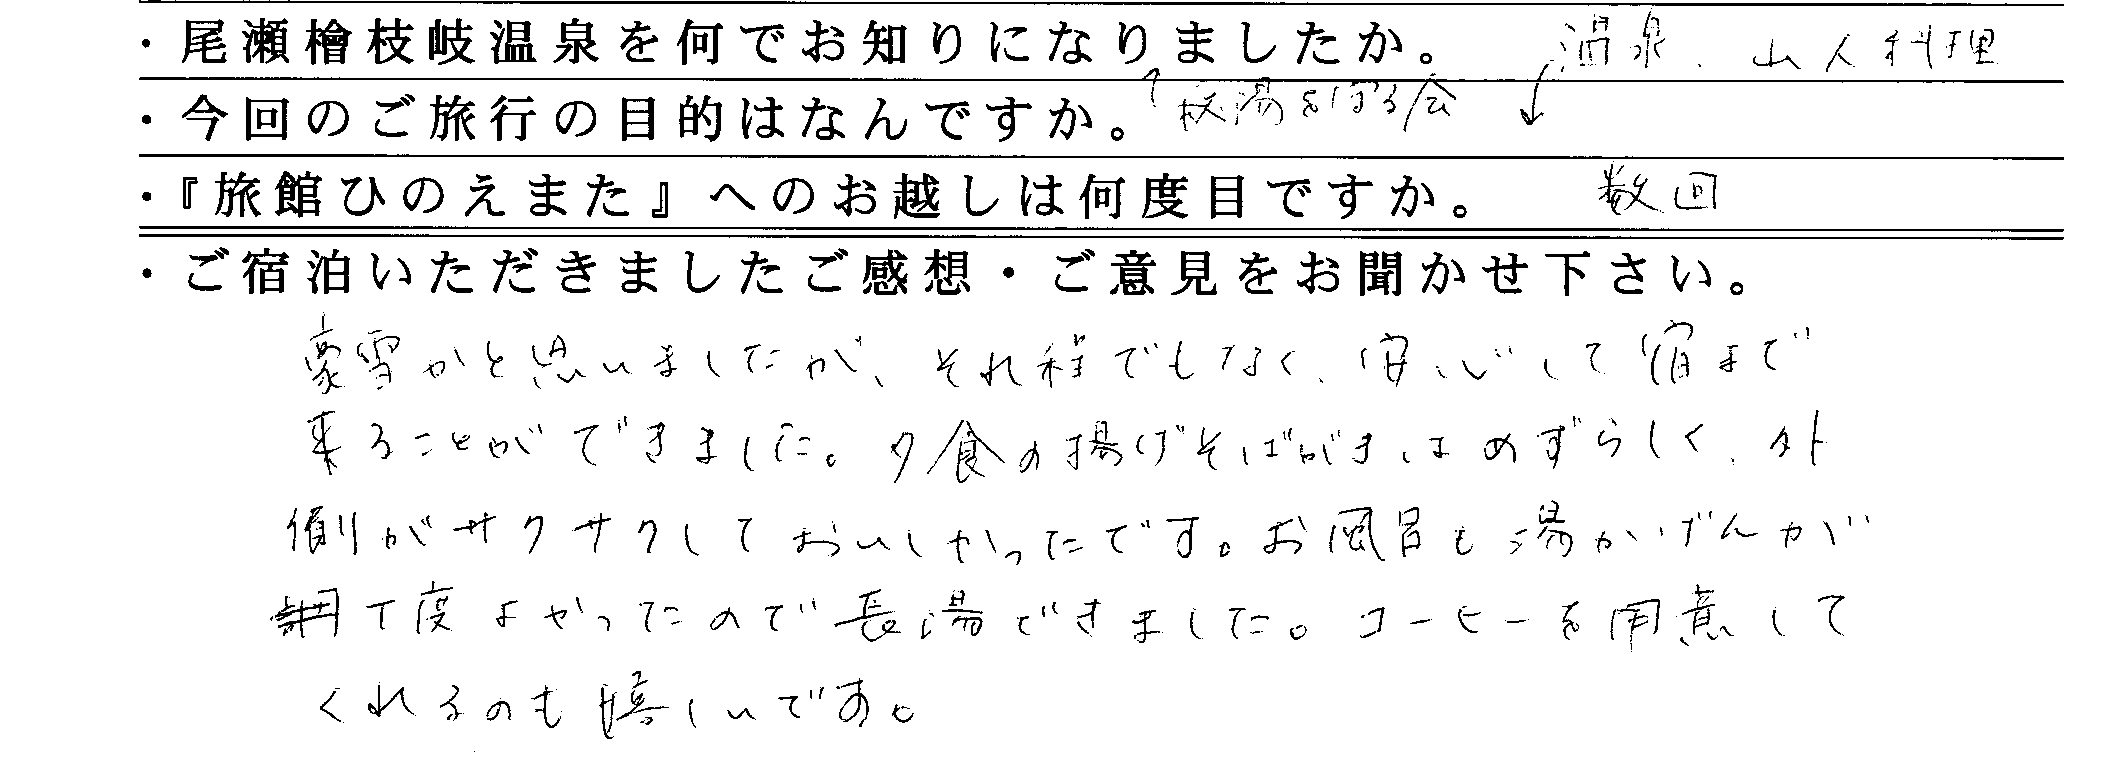 ・尾瀬檜枝岐温泉を何でお知りになりましたか。 温泉、山人料理
・今回のご旅行の目的はなんですか。 ↑秘湯を守る会 ↓
・『旅館ひのえまた』へのお越しは何度目ですか。 数回
・ご宿泊いただきましたご感想・ご意見をお聞かせ下さい。
豪雪かと思いましたが、それ程でもなく、安心して宿まで
来ることができました。夕食の揚げそばがきはめずらしく、外
側がサクサクしておいしかったです。お風呂も湯かげんが
丁度よかったので長湯できました。コーヒーを用意して
くれるのも嬉しいです。